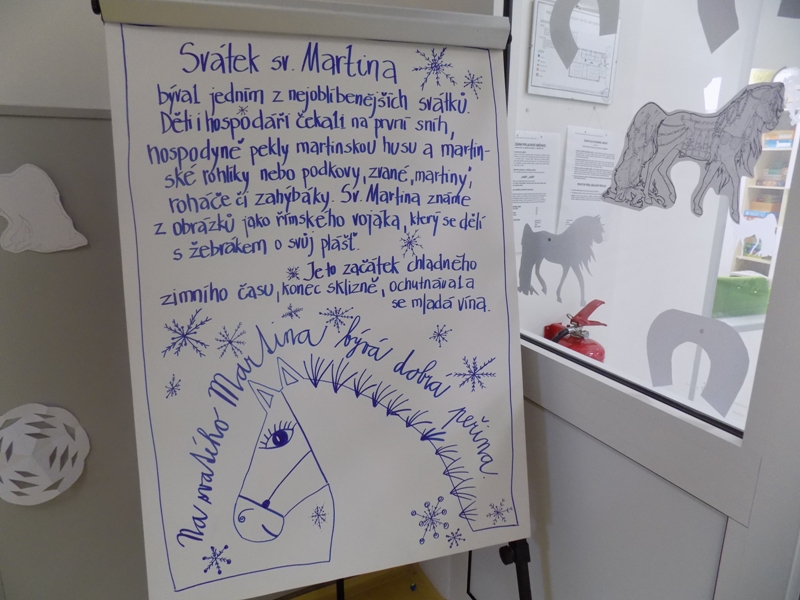 Svátek sv. Martina
býval jedním z nejoblíbenějších svátků.
Děti i hospodáři čekali na první sníh,
hospodyně pekly martinskou husu a martin-
ské rohlíky nebo podkovy, zvané „martiny“,
roháče či zahýbáky. Sv. Martina známe
z obrázků jako římského vojáka, který se dělí
s žebrákem o svůj plášť.
Je to začátek chladného
zimního času, konec sklizně, ochutnávala
se mladá vína.
Na svatého Martina bývá dobrá peřina.